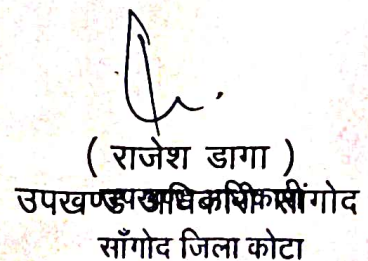 ( राजेश डागा )
उपखण्ड अधिकारी सांगोद
साँगोद जिला कोटा